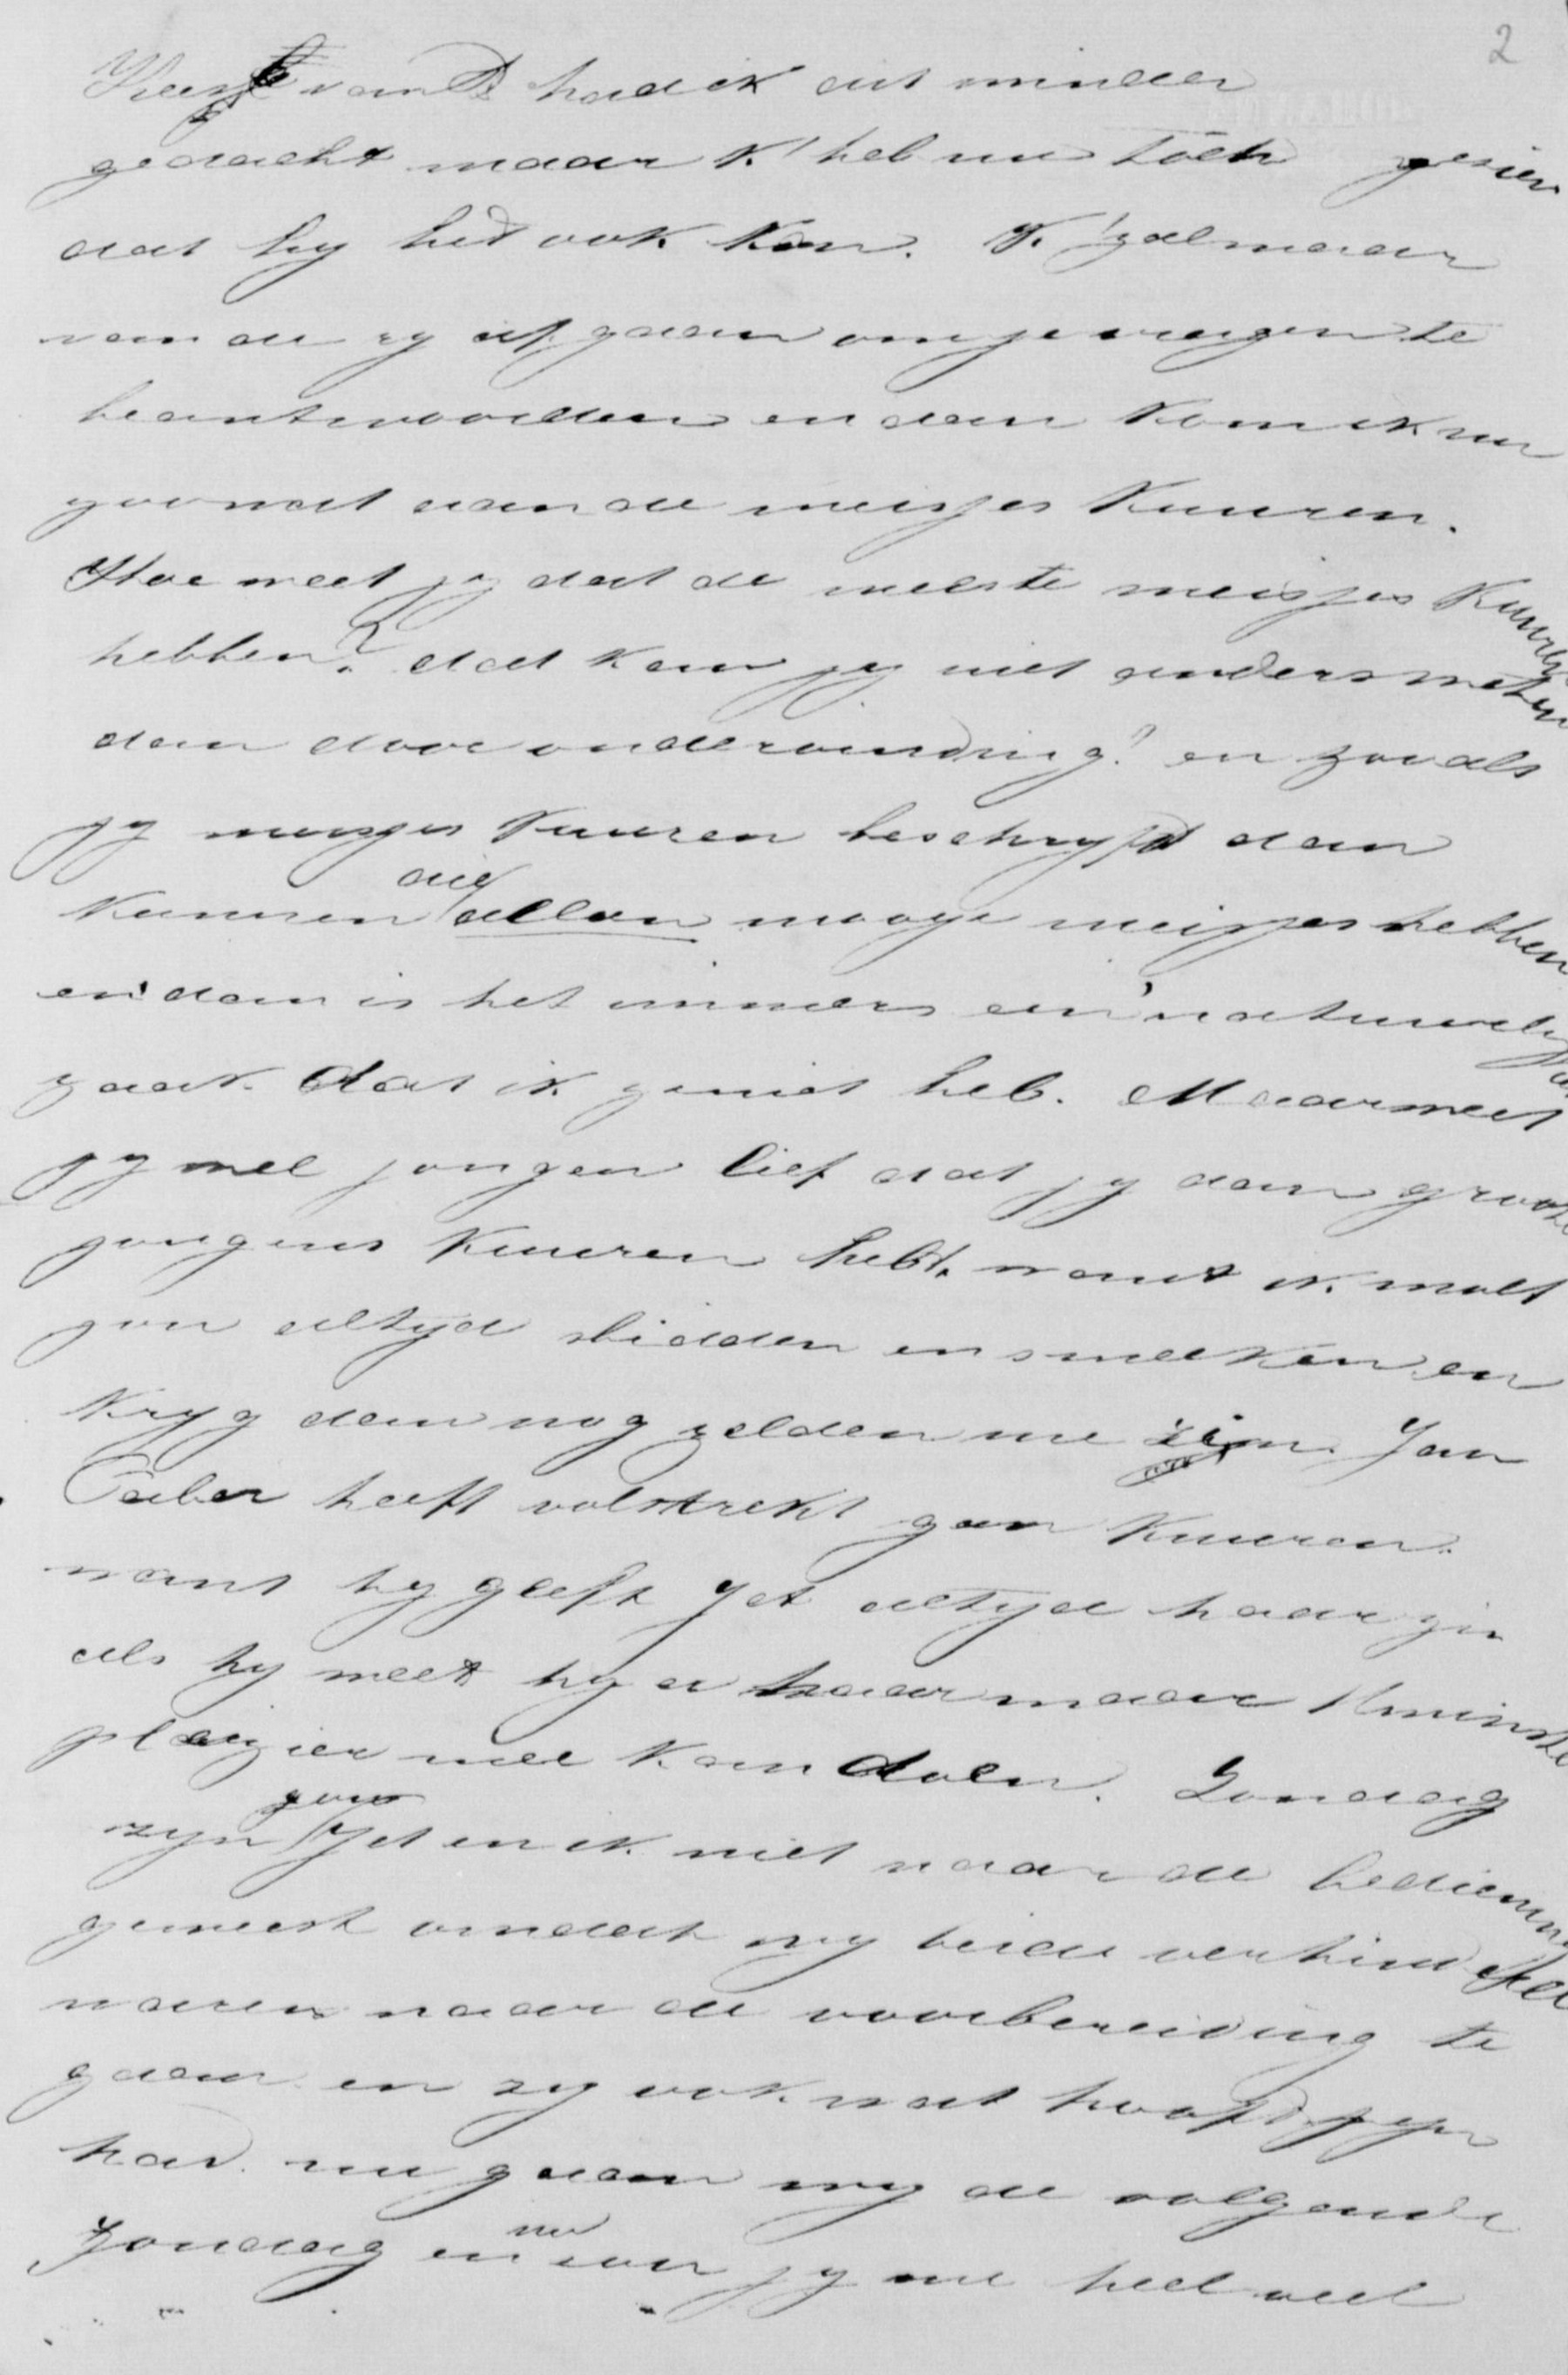 2
Kees van D had ik dit minder
gedacht maar k' heb nu tóch gezien
dat hy het ook kan. K 'zal maar
van de ry af gaan om je vragen te
beantwoorden en dan kom ik nu
gouwat aan de meisjes kuuren.
Hoe weet jy dat de meeste meisjes kuuren
hebben? dat kan jy niet anders weten
dan door ondervinding! en zooals
jy meisjes kuuren beschryft dan
kunnen die alleen mooye meisjes hebben
en dan is het immers een natuurlyke
zaak dat ik ze niet heb. Maar weet
jy wel jongen lief dat jy dan groote
jongens kuuren hebt, want ik moet
jou altyd bidden en smeeken en
kryg dan nog zelden me zin. Jan
Faber heeft volstrekt geen kuuren.
want hy geeft Jet altyd haar zin
als hy weet hy er haar maar 't minste
plaizier mee kan doen. Zondag
zyn Jet en ik niet naar de bediening
geweest omdat wy beide verhinderd
waren naar de voorbereiding te
gaan en zy ook wat hoofdpyn
had. nu gaan wy de volgende
Zondag en nu kan jy me heel veel